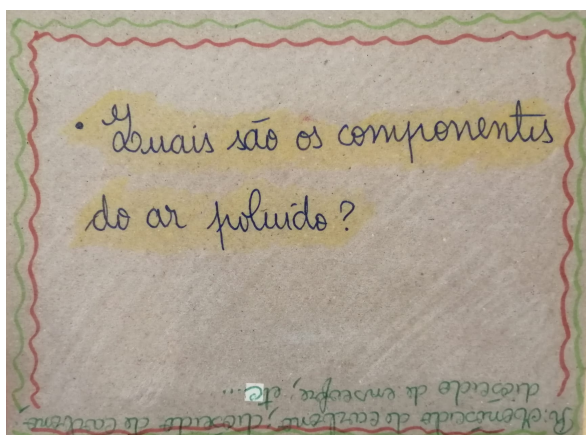 • Quais são os componentes
do ar poluído?
R: Monóxido de carbono, dióxido de carbono
dióxido de enxofre, etc...